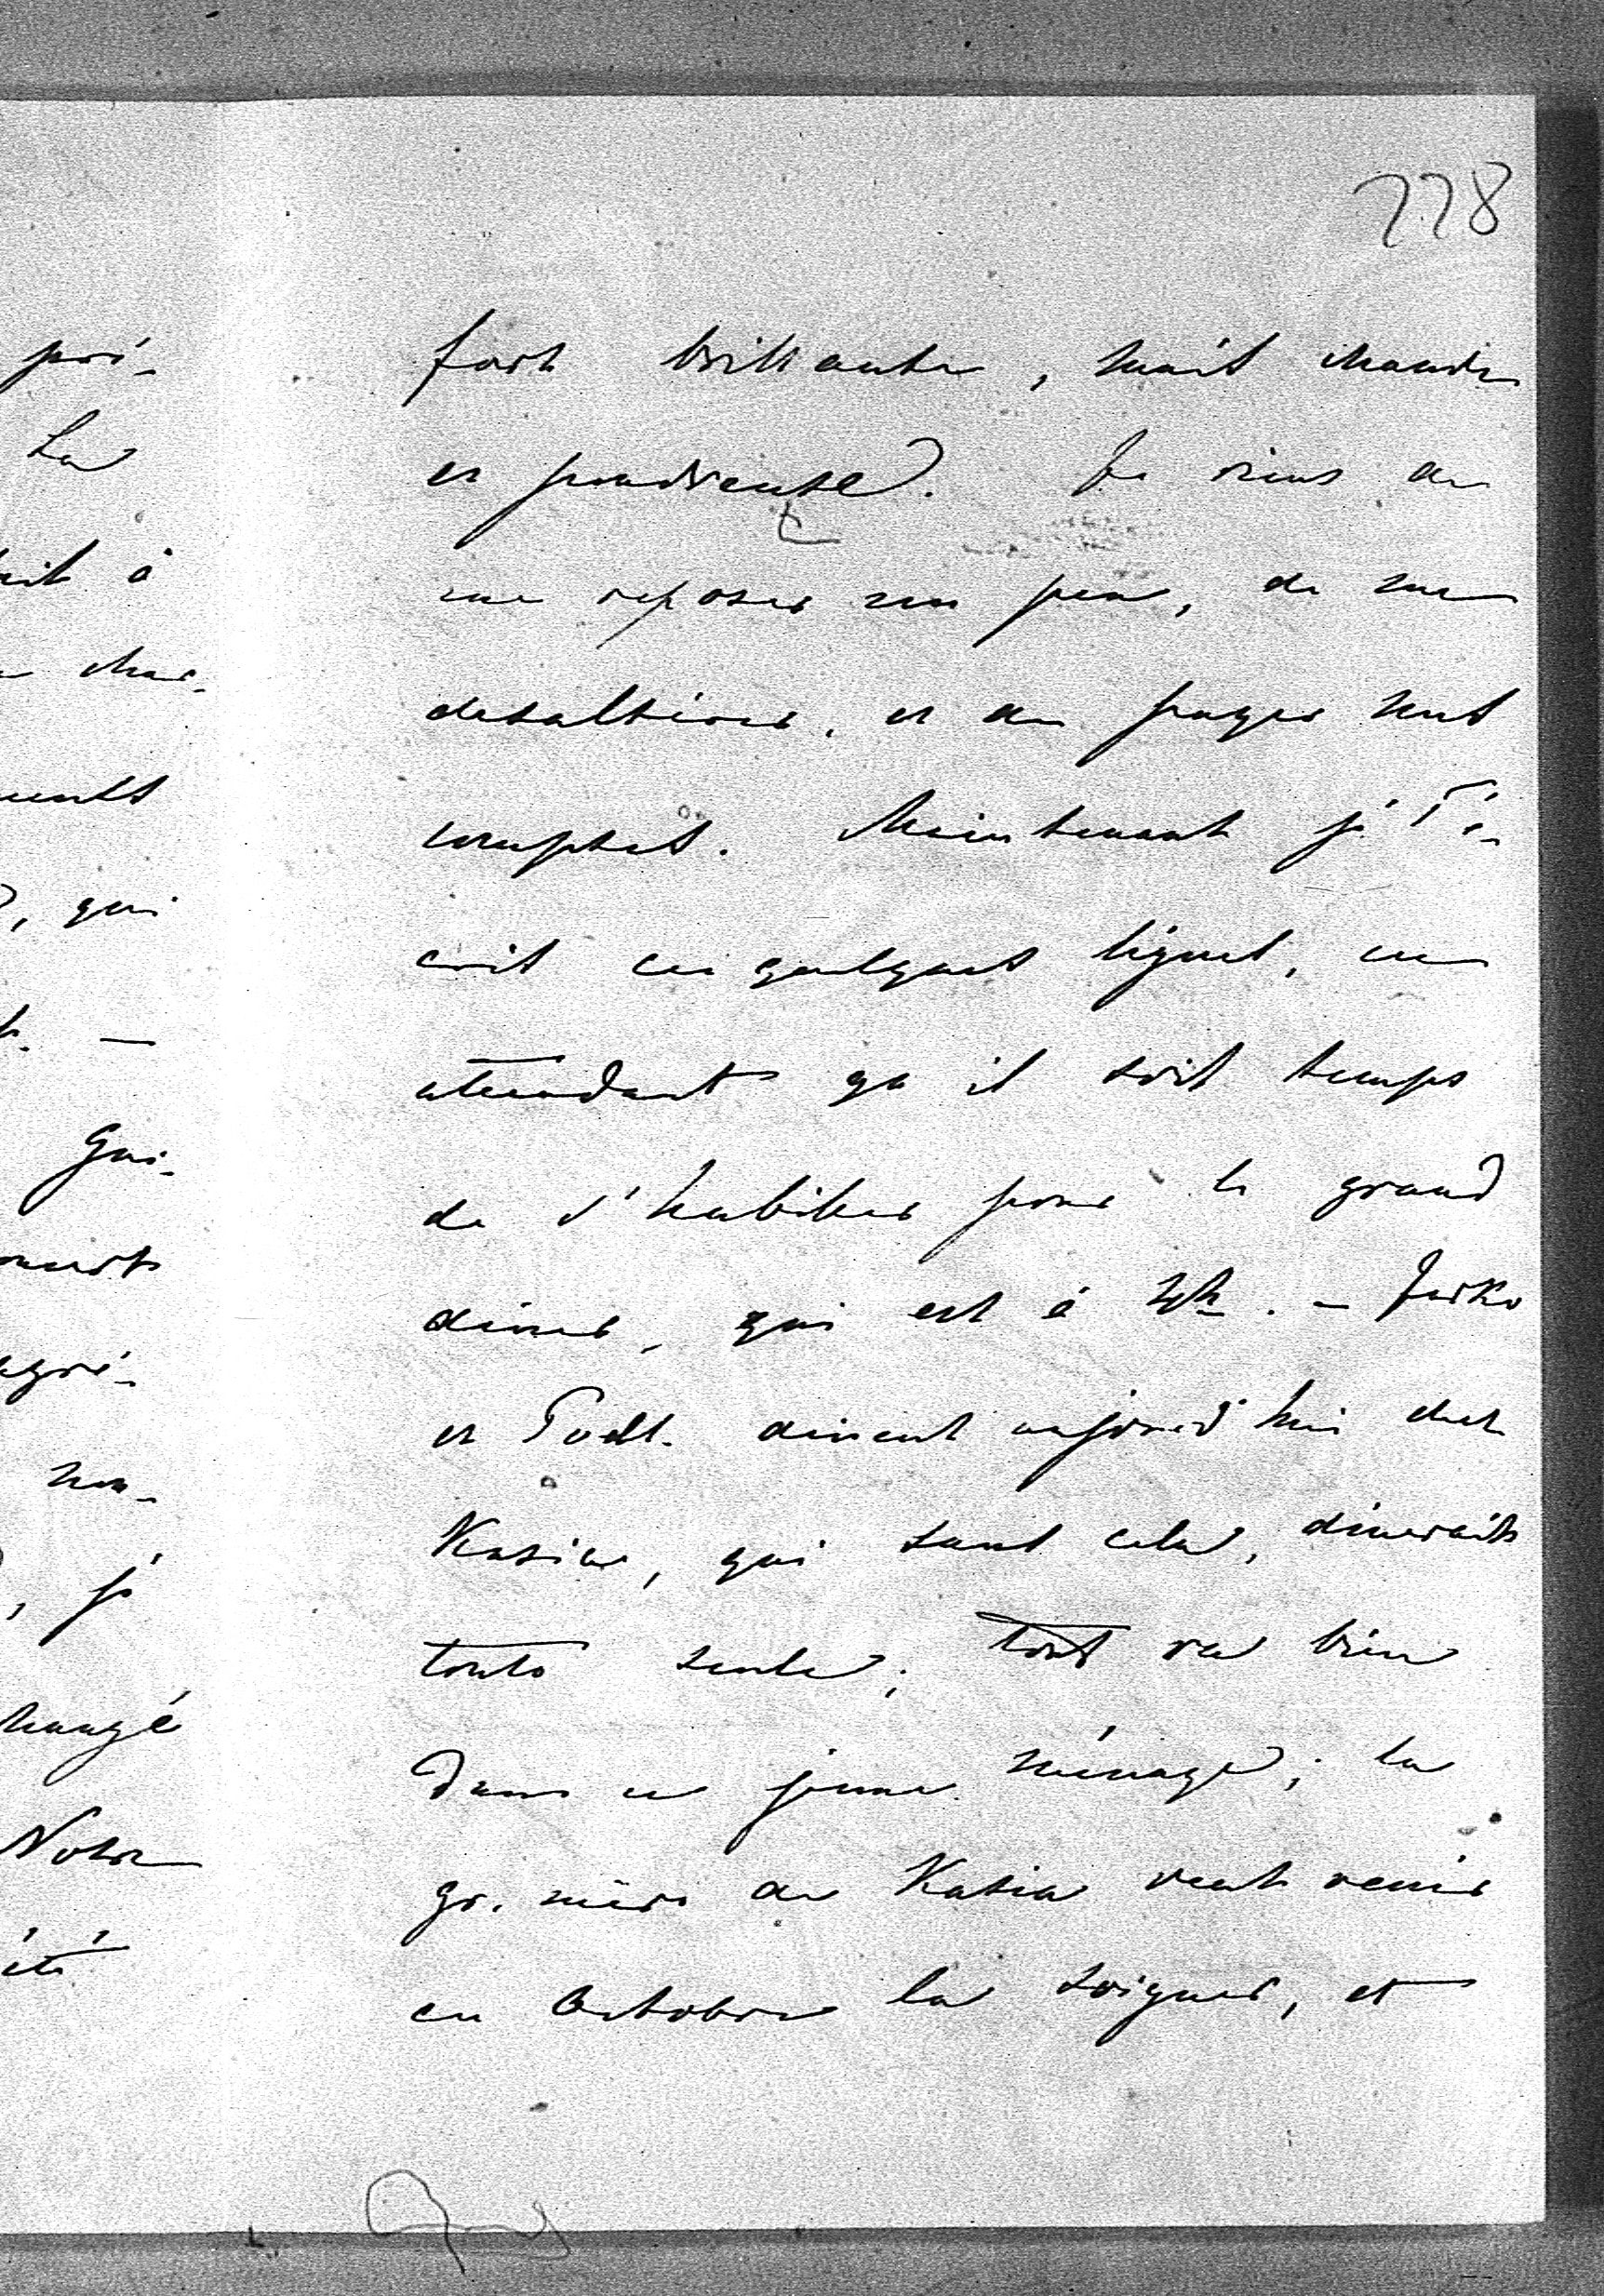 778
fort brillante, mais chaude
et poudreuse. Je viens de
me reposer un peu, de me
desaltérer, et de payer mes
comptes. Maintenant je T'é-
cris ces quelques lignes, en
attendant qu'il soit temps
de s'habiller pour le grand
diner, qui est à 4h. –
et dinent aujourd'hui chez
Kasia, qui sans cela, dinerait
toute seule. Tout va bien
dans ce jeune ménage; la
gr. mère de Kasia veut venir
en Octobre la soigner, et
pré-
La
à
qui
Gui-
non-
je
Notre
été